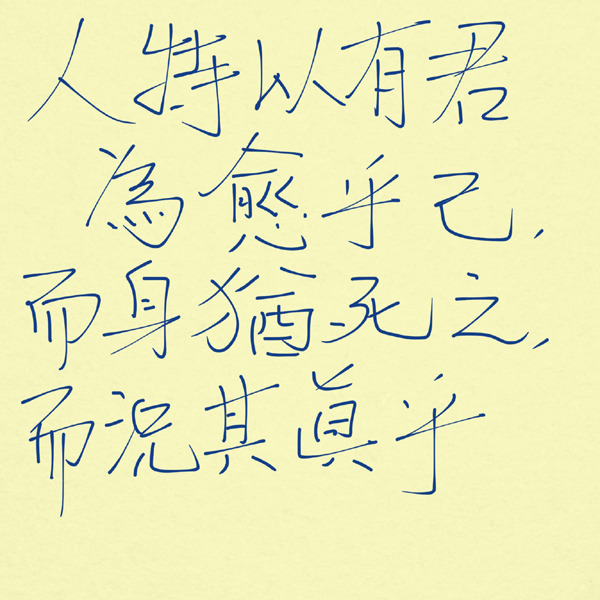 人特以有君
為愈乎己,
而身猶死之,
而況其眞乎